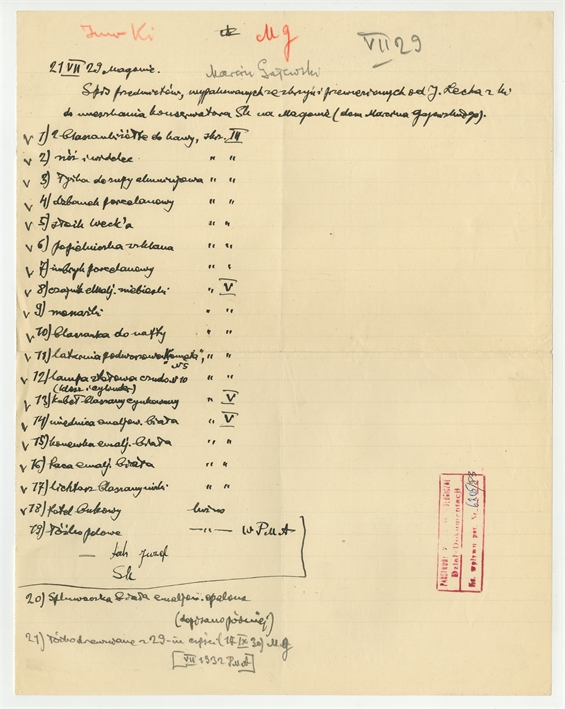 Inw Ki Mg VII 29
21 VII 29 Magonie. Marcin Gajewski
Spis przedmiotów, wypakowanych ze skrzyń i przewiezionych od J. Lecha z Iw
do mieszkania konserwatora Sk na Magonie (dom Marcina Gajewskiego).
v 1) 2 blaszanki do kawy, skr. III
v 2) nóż i widelec " "
v 3) łyżka do zupy aluminjowa " "
v 4) dzbanek porcelanowy " "
v 5) słoik Weck'a " "
v 6) popielniczka szklana " "
v 7) imbryk porcelanowy " "
v 8) czajnik emalj. niebieski " V
v 9) menażki " "
v 10) blaszanka do nafty " "
v 11) latarnia podwórzowa " "
" No 5
v 12) lampa stołowa No 10 " "
(klosz i cylinder)
v 13) kubeł blaszany cynkowany " V
v 14) miednica emaljow. biała " V
v 15) konewka emalj. biała " "
v 16) kaca emalj. biała " "
v 17) lichtarz blaszany " "
v 18) fotel bukowy luźno
19) łóżko polowe —"— W P.M.A
— Józef
Sk
20) Spluwaczka biała emaljow. opalona
(dopisano później)
21) Łóżko drewniane z 29-iu części (17 IX 30) Mg
[VII 1932 PMA]
PAŃSTWOWE MUZEUM ARCHEOLOGICZNE
Dział Dokumentacji
Ks. wpływu poz. Nr.